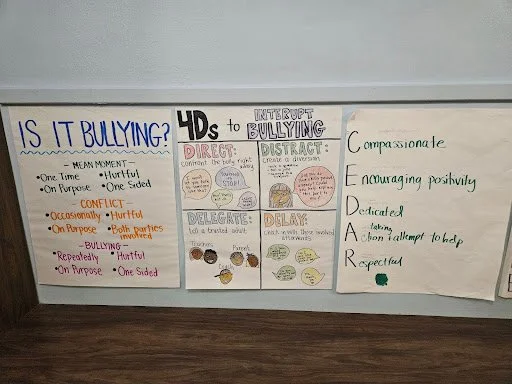 IS IT BULLYING?
- MEAN MOMENT -
• One Time • Hurtful
• On Purpose • One Sided
- CONFLICT -
• Occasionally • Hurtful
• On Purpose • Both parties
involved
- BULLYING -
• Repeatedly • Hurtful
• On Purpose • One Sided
4Ds to INTERUPT
BULLYING
DIRECT:
confront the bully right
away
DISTRACT:
create a diversion
DELEGATE:
tell a trusted adult
Teachers Parents
DELAY:
check in with those involved
afterwards
Compassionate
Encouraging positivity
Dedicated
taking
Action & attempt to help
Respectful